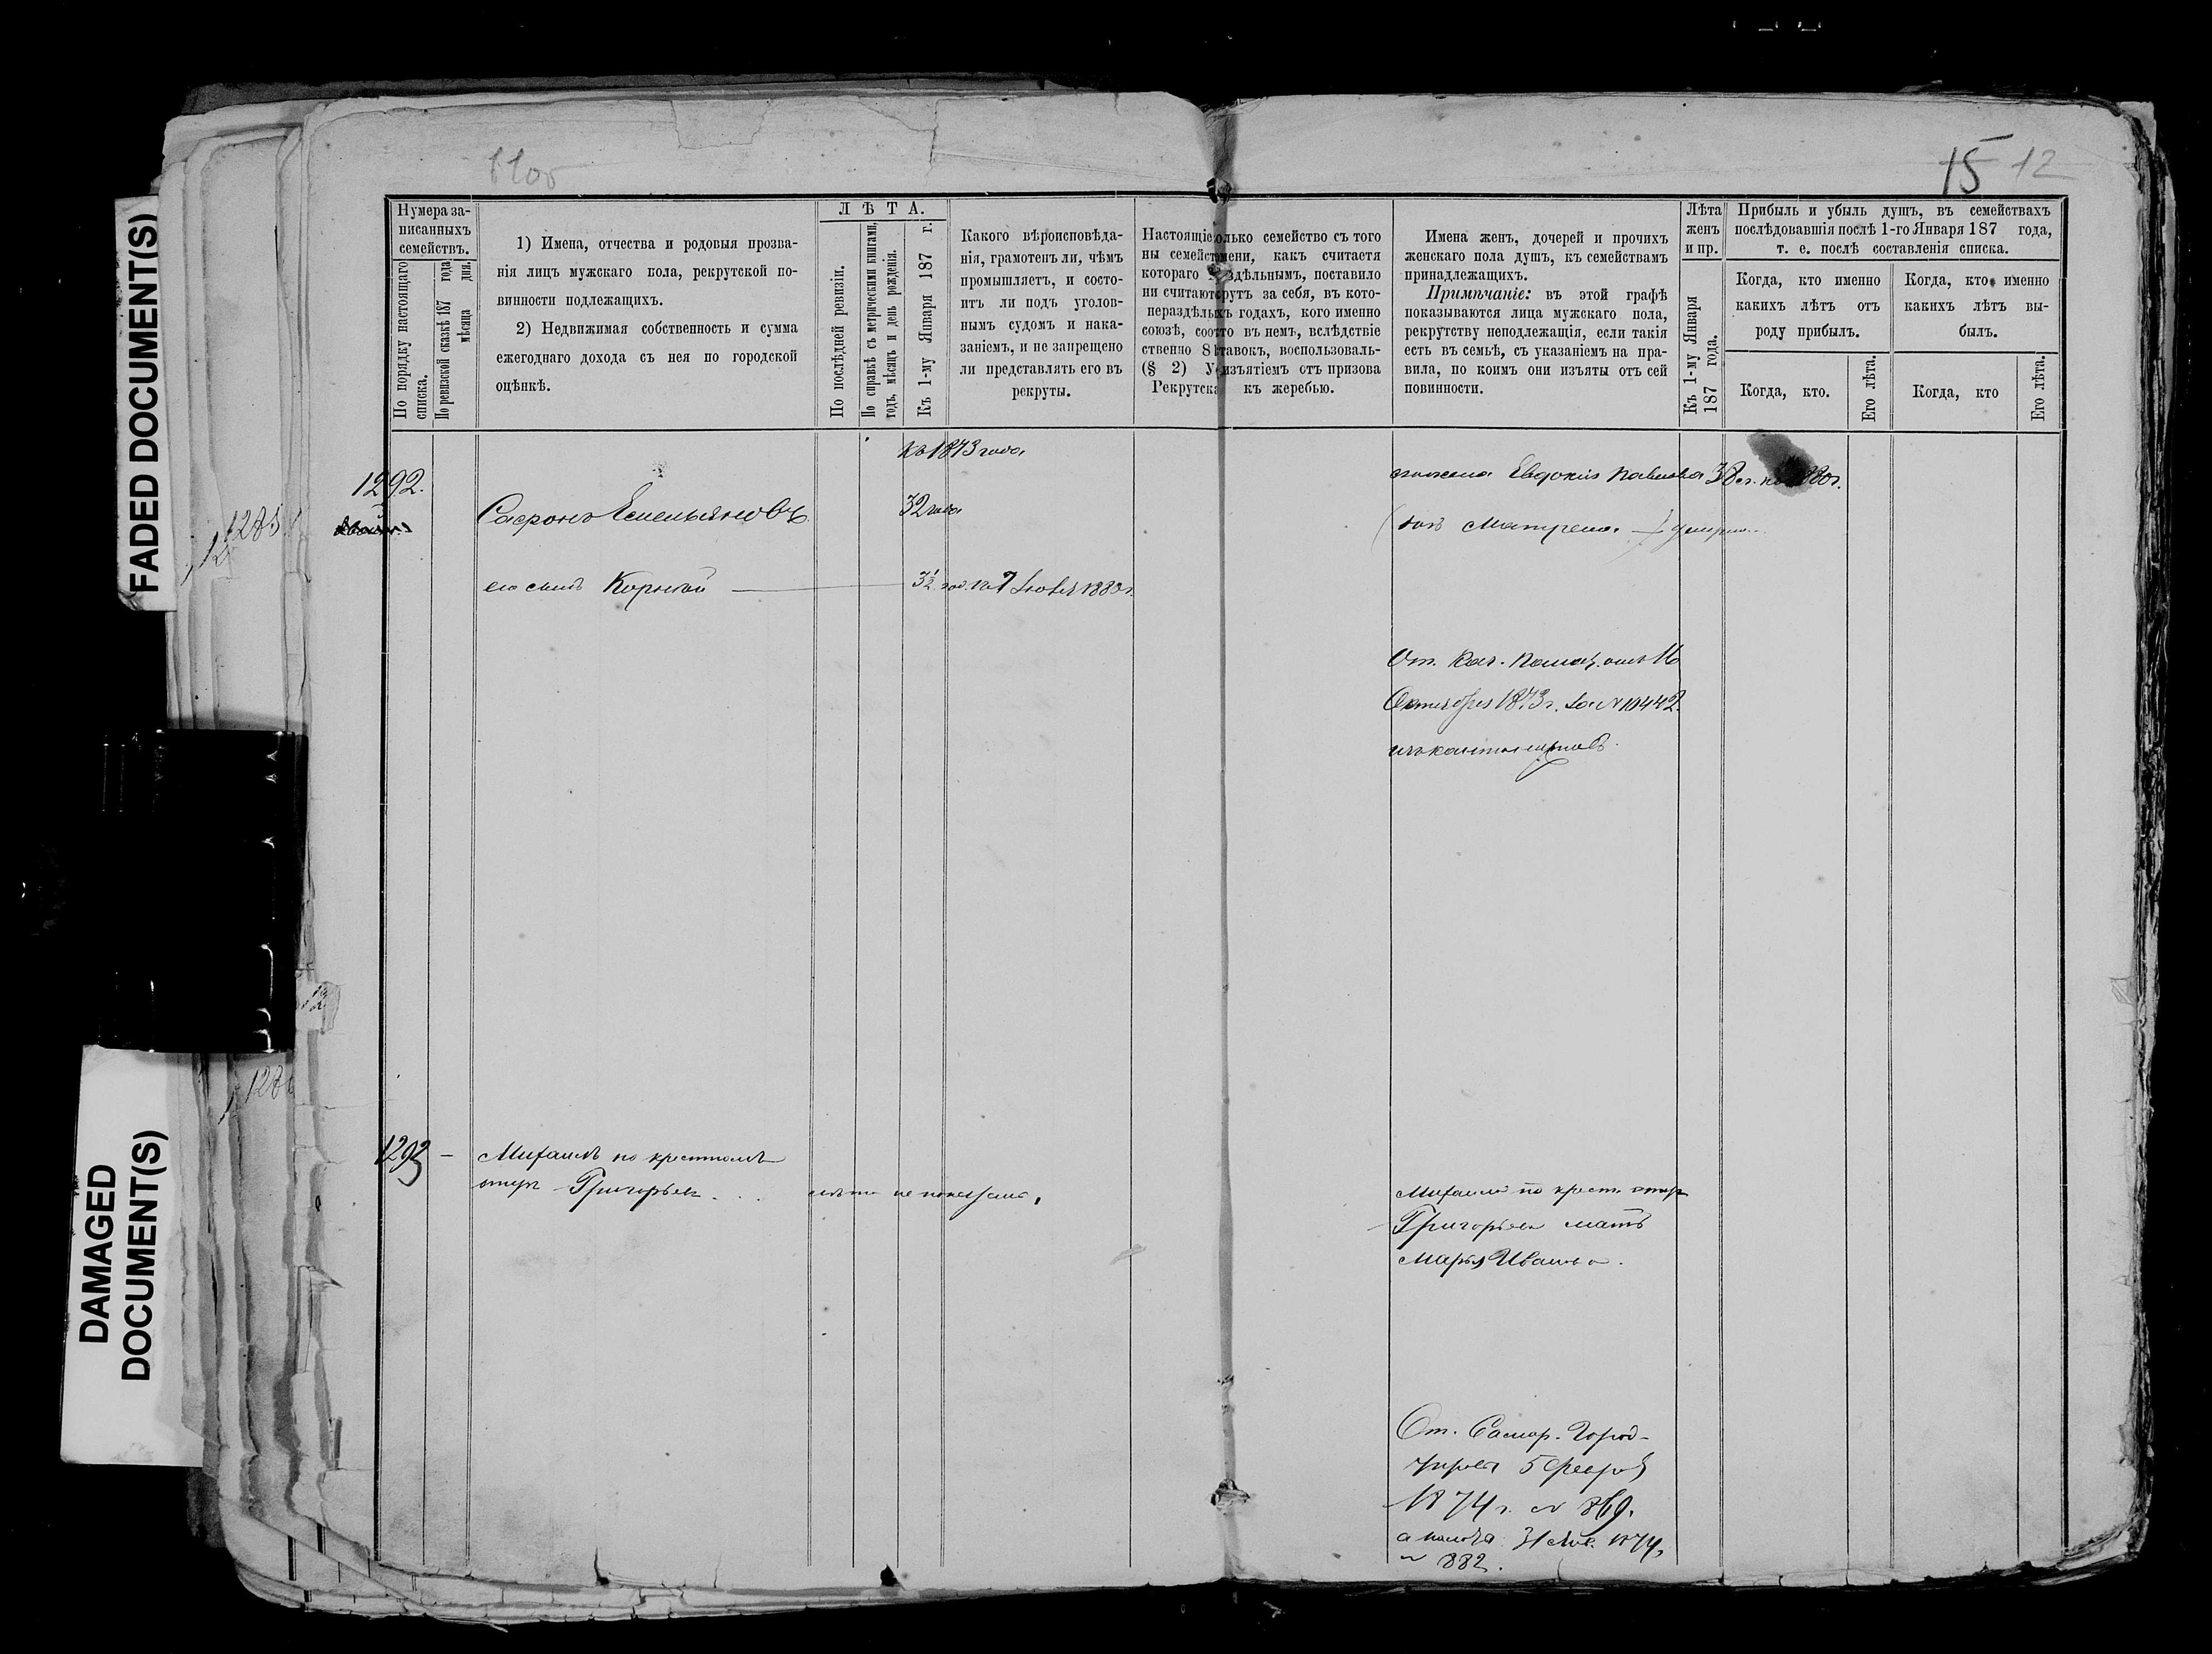 FADED DOCUMENT(S)
DAMAGED
DOCUMENT(S)
15 12
Нумера за-
писанныхъ
семействъ.
По порядку настоящаго
списка.
По ревизской сказкѣ 187 года
мѣсяца дня.
1) Имена, отчества и родовыя прозва-
нія лицъ мужскаго пола, рекрутской по-
винности подлежащихъ.
2) Недвижимая собственность и сумма
ежегоднаго дохода съ нея по городской
оцѣнкѣ.
Л Ѣ Т А.
По послѣдней ревизіи.
По справкѣ съ метрическими книгами,
годъ, мѣсяцъ и день рожденія.
Къ 1-му Января 187 г.
Какого вѣроисповѣда-
нія, грамотенъ ли, чѣмъ
промышляетъ, и состо-
итъ ли подъ уголов-
нымъ судомъ и нака-
заніемъ, и не запрещено
ли представлять его въ
рекруты.
Настоящіе олько семейство съ того
ны семейст мени, какъ считаетя
котораго здѣльнымъ, поставило
ни считают рутъ за себя, въ кото-
нераздѣлы хъ годахъ, кого именно
союзѣ, соот то въ немъ, вслѣдствіе
ственно 8 ставокъ, воспользоваль-
(§ 2) У изъятіемъ отъ призова
Рекрутска къ жеребью.
Имена женъ, дочерей и прочихъ
женскаго пола душъ, къ семействамъ
принадлежащихъ.
Примѣчаніе: въ этой графѣ
показываются лица мужскаго пола,
рекрутству неподлежащія, если такія
есть въ семьѣ, съ указаніемъ на пра-
вила, по коимъ они изъяты отъ сей
повинности.
Лѣта
женъ
и пр.
Къ 1-му Января
187 года.
Прибыль и убыль душъ, въ семействахъ
послѣдовавшія послѣ 1-го Января 187 года,
т. е. послѣ составленія списка.
Когда, кто именно
какихъ лѣтъ отъ
роду прибылъ.
Когда, кто именно
какихъ лѣтъ вы-
былъ.
Когда, кто.
Его лѣта.
Когда, кто
Его лѣта.
1285
128
къ 1873 года
1292.
Сафронъ Емельяновъ.
32 года
жена Евдокія Павлова 38 л.
Матрена
его сынъ Корнѣй
3½ год. 1880 г.
От. Каз. Палат. отъ 16
Октября 1873 г. за № 19442.
изъ кантонистовъ.
1293 — Михаилъ по крестному
отцу Григорьевъ . . . лѣта не показано,
Михаила по крест. отцу
Григорьева мать
Марья Иванова.
От. Самар. Город-
управы 5 Февраля
1874 г. № 869.
31 1874,
№ 882.